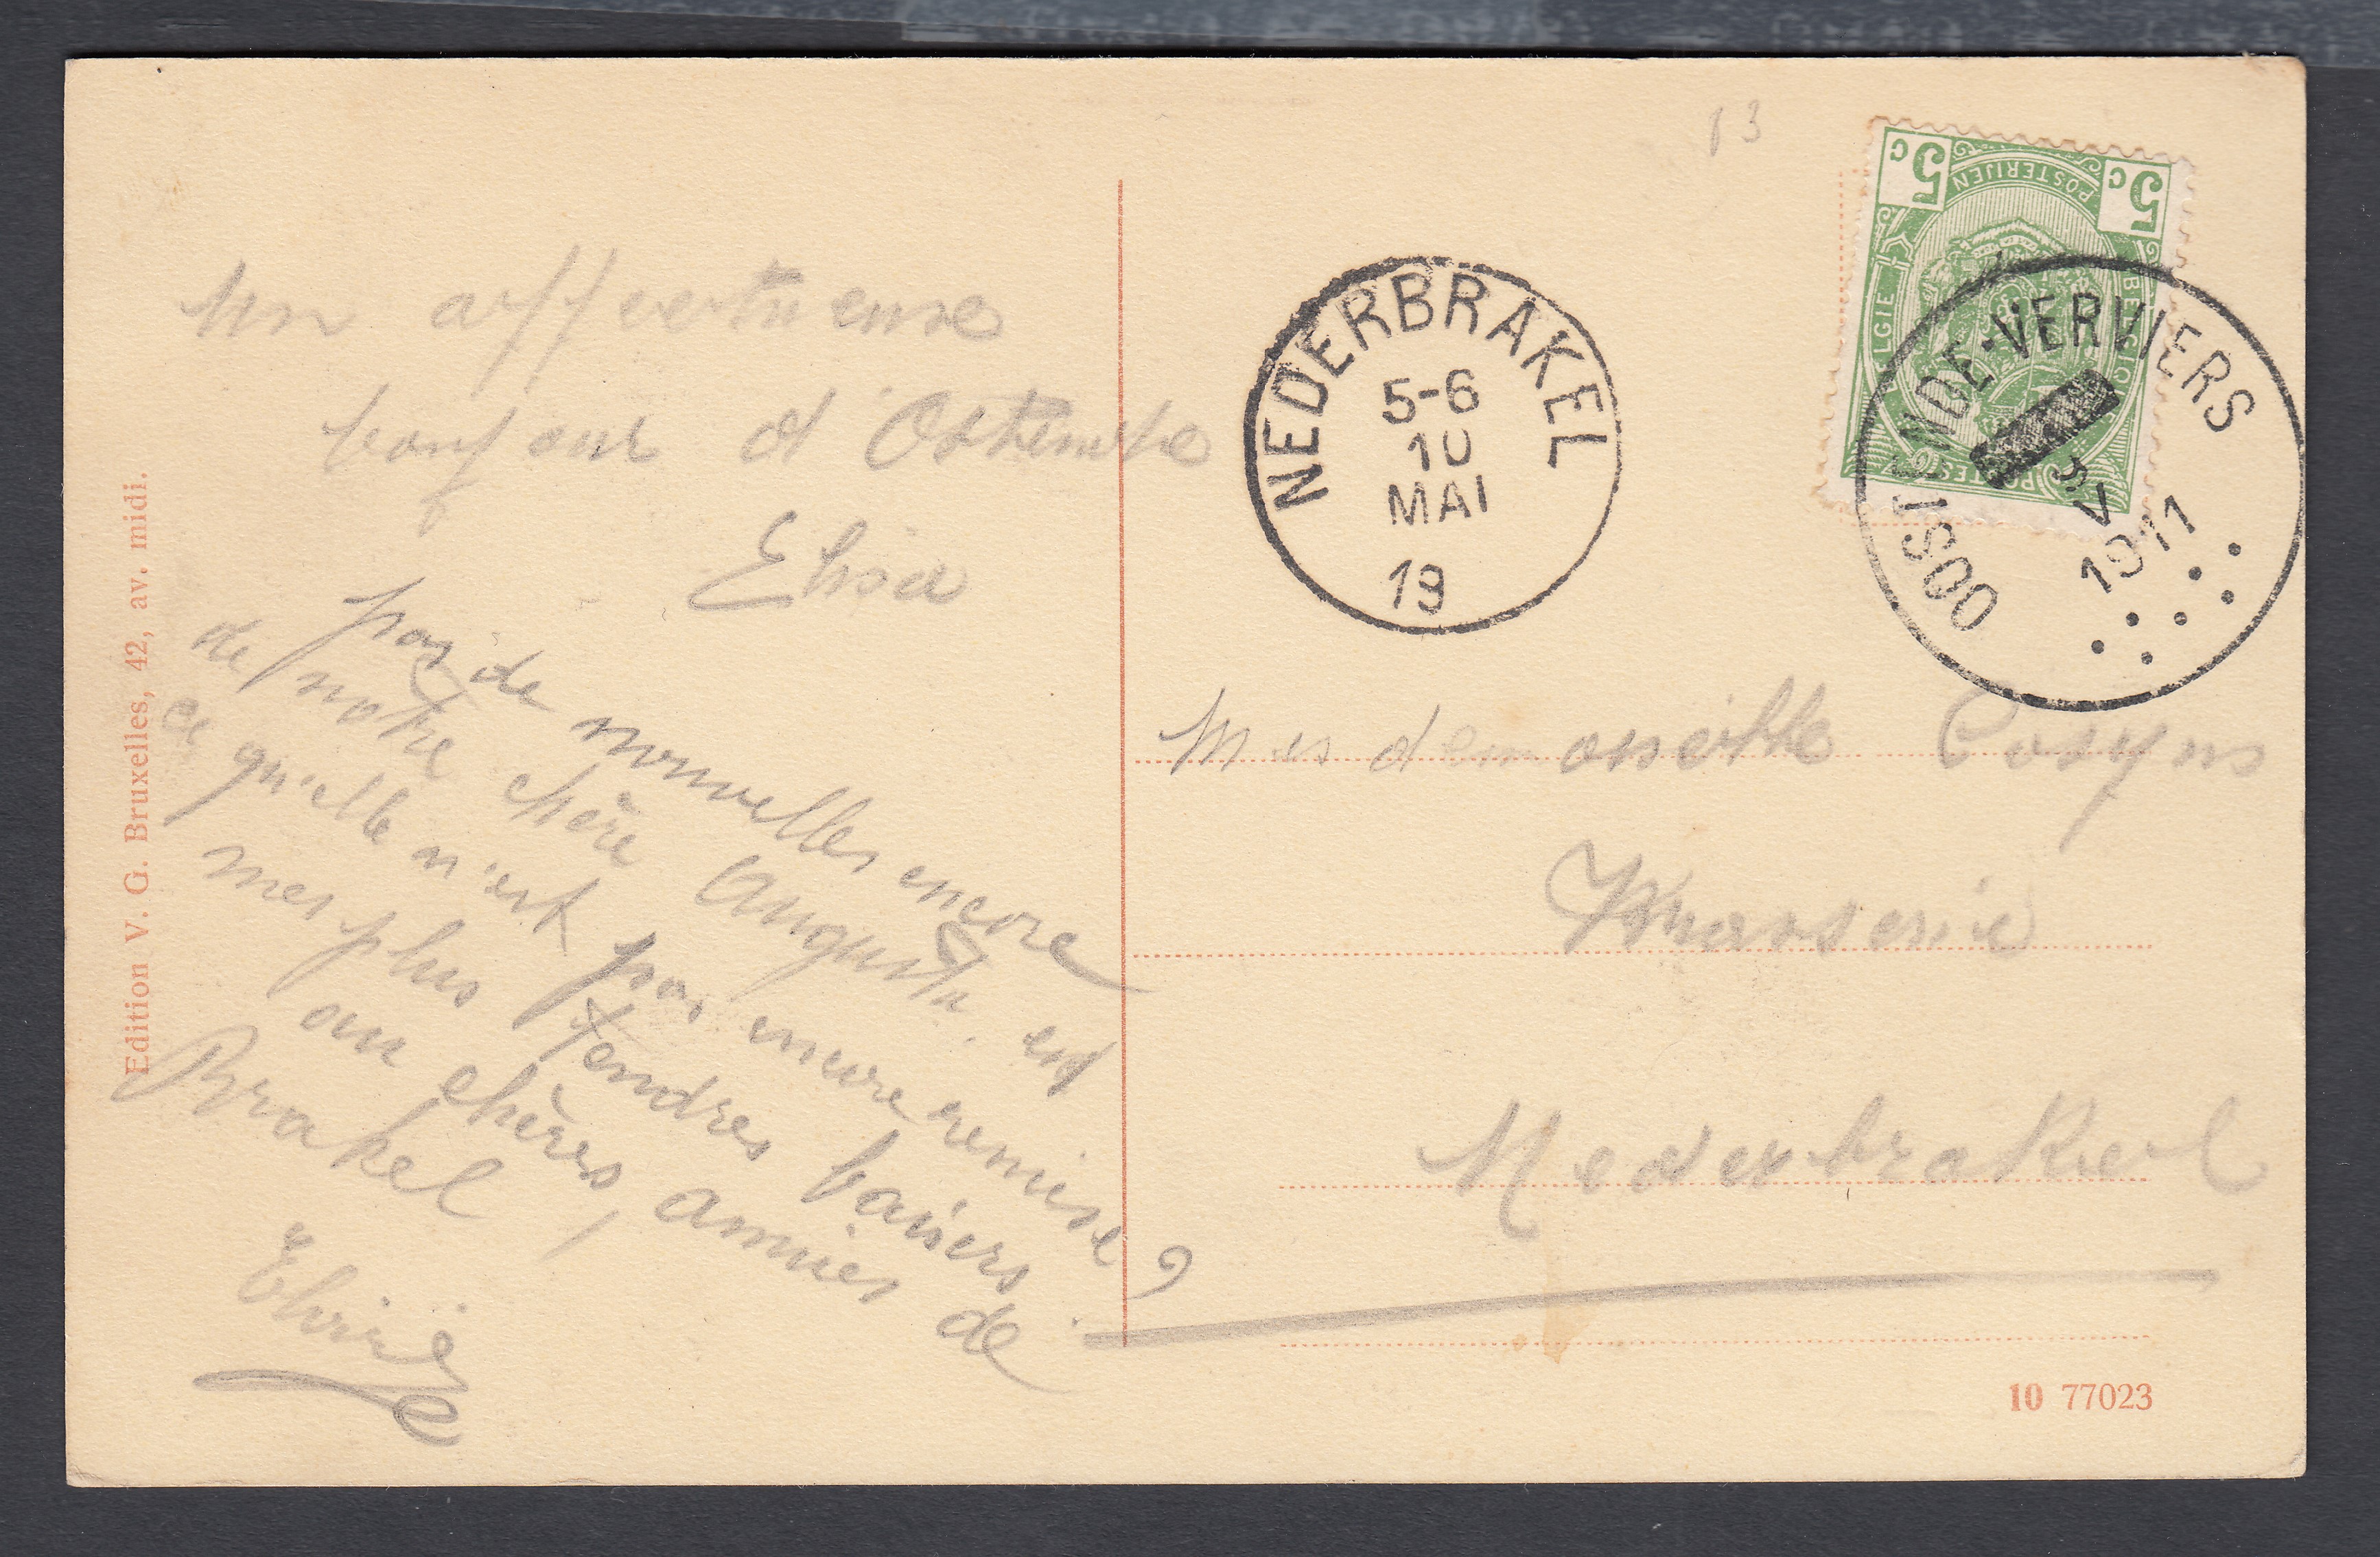 Un affectueuse
bonjour d'Ostende
Elisa
pas de nouvelles encore
de notre chère Augusta. est
ce qu'elle n'est pas encore remise?
mes plus tendres baisers
au chères amies de
Brakel,
Elvire
Edition V. G. Bruxelles, 42, av. midi.
13
5c 5c
POSTERIJEN
BELGIQ
LGIE
POSTES
OOSTENDE-VERVIERS
9 V
1911
NEDERBRAKEL
5-6
10
MAI
19
Mesdemoiselle Cosyns
Brasserie
Nederbrakel
10 77023